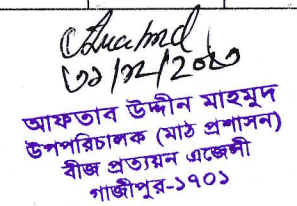 ৩১/১২/২০১৩
আফতাব উদ্দীন মাহমুদ
উপপরিচালক (মাঠ প্রশাসন)
বীজ প্রত্যয়ন এজেন্সী
গাজীপুর-১৭০১